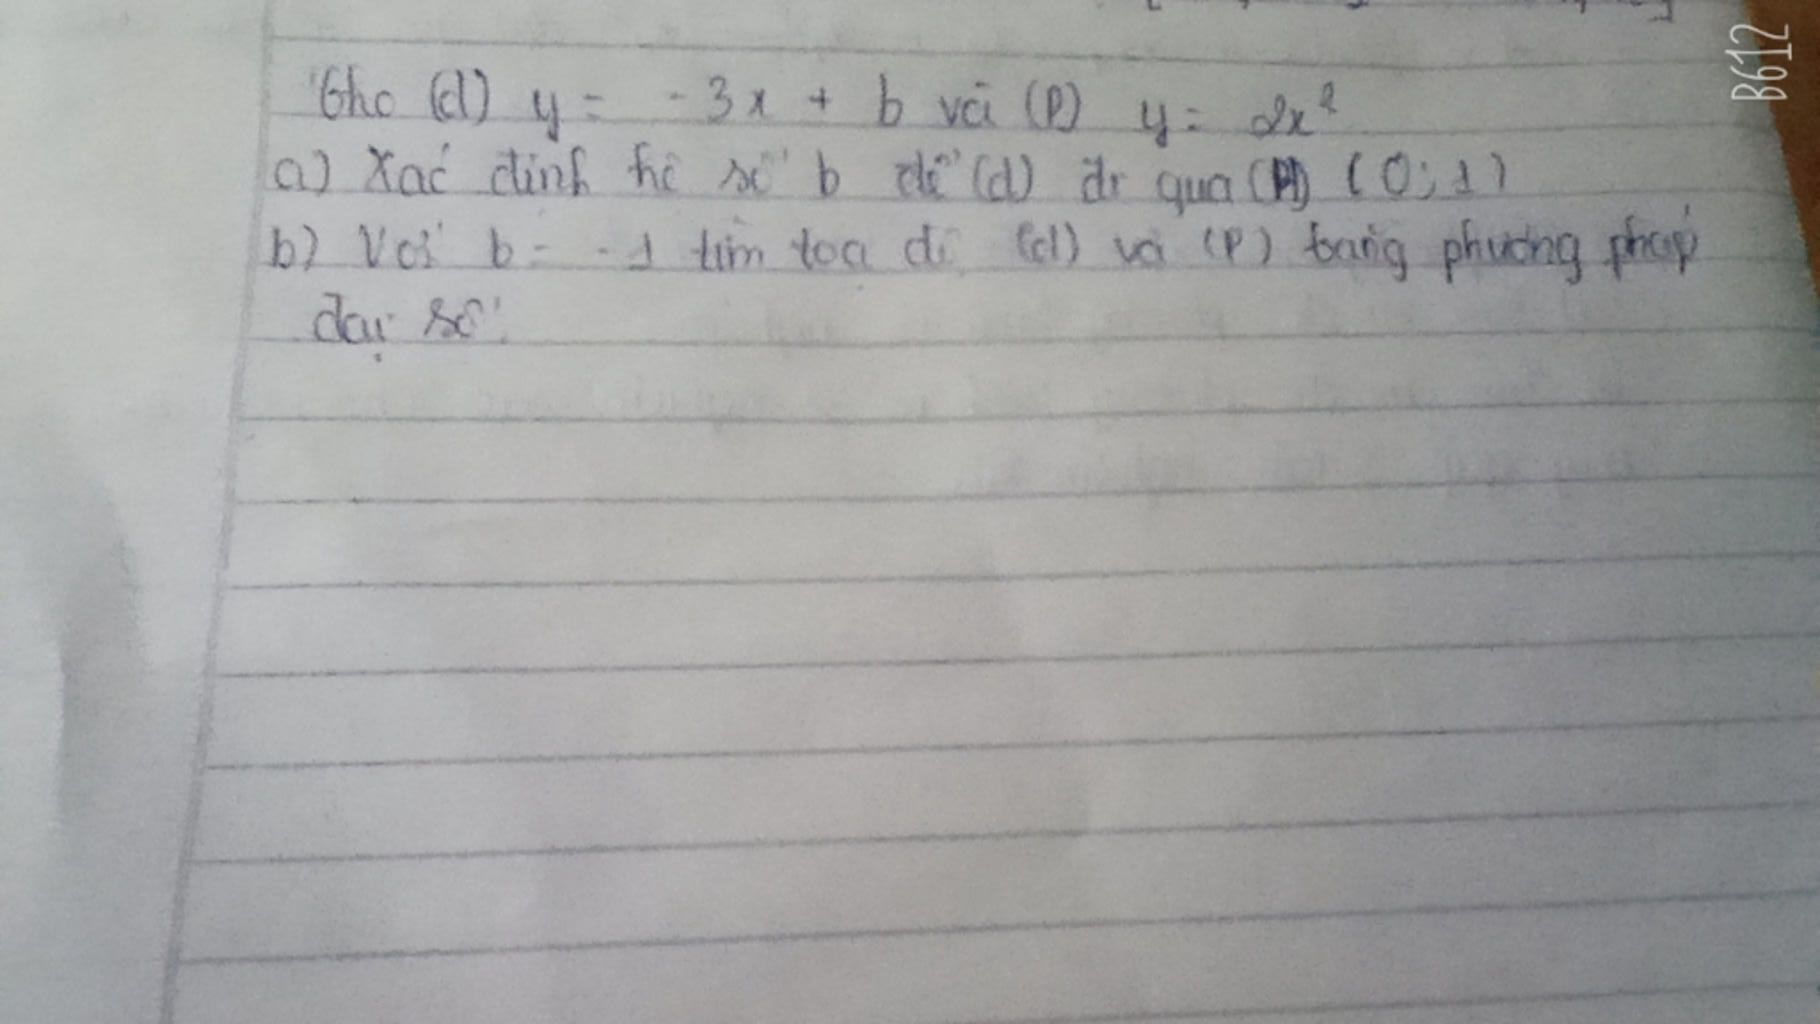 Cho (d) y = -3x + b và (P) y = 2x²
a) Xác định hê số b để (d) đi qua (0;1)
b) Với b = -1 tìm toa đô (d) và (P) bằng phương pháp
đại số.
B612